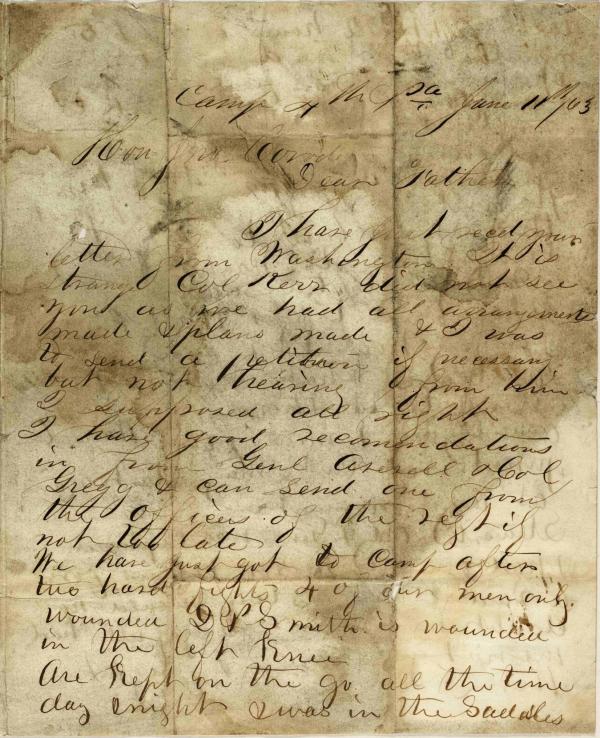 Camp 4th Pa June 11th/63
Hon Jno. Covode
Dear Father
I have just recd your
letter from Washington It is
strange Col Kerr did not see
you as we had all arrangements
made & plans made & I was
to send a petition if necessary
but not hearing from him
I supposed all right
I have good recomendations
in from Genl Averell & Col
Gregg & can send one from
the officers of the regt if
not too late
We have just got to camp after
two hard fights 4 of our men only
wounded D P Smith is wounded
in the left Knee
Are Kept on the go all the time
day & night & was in the Saddles